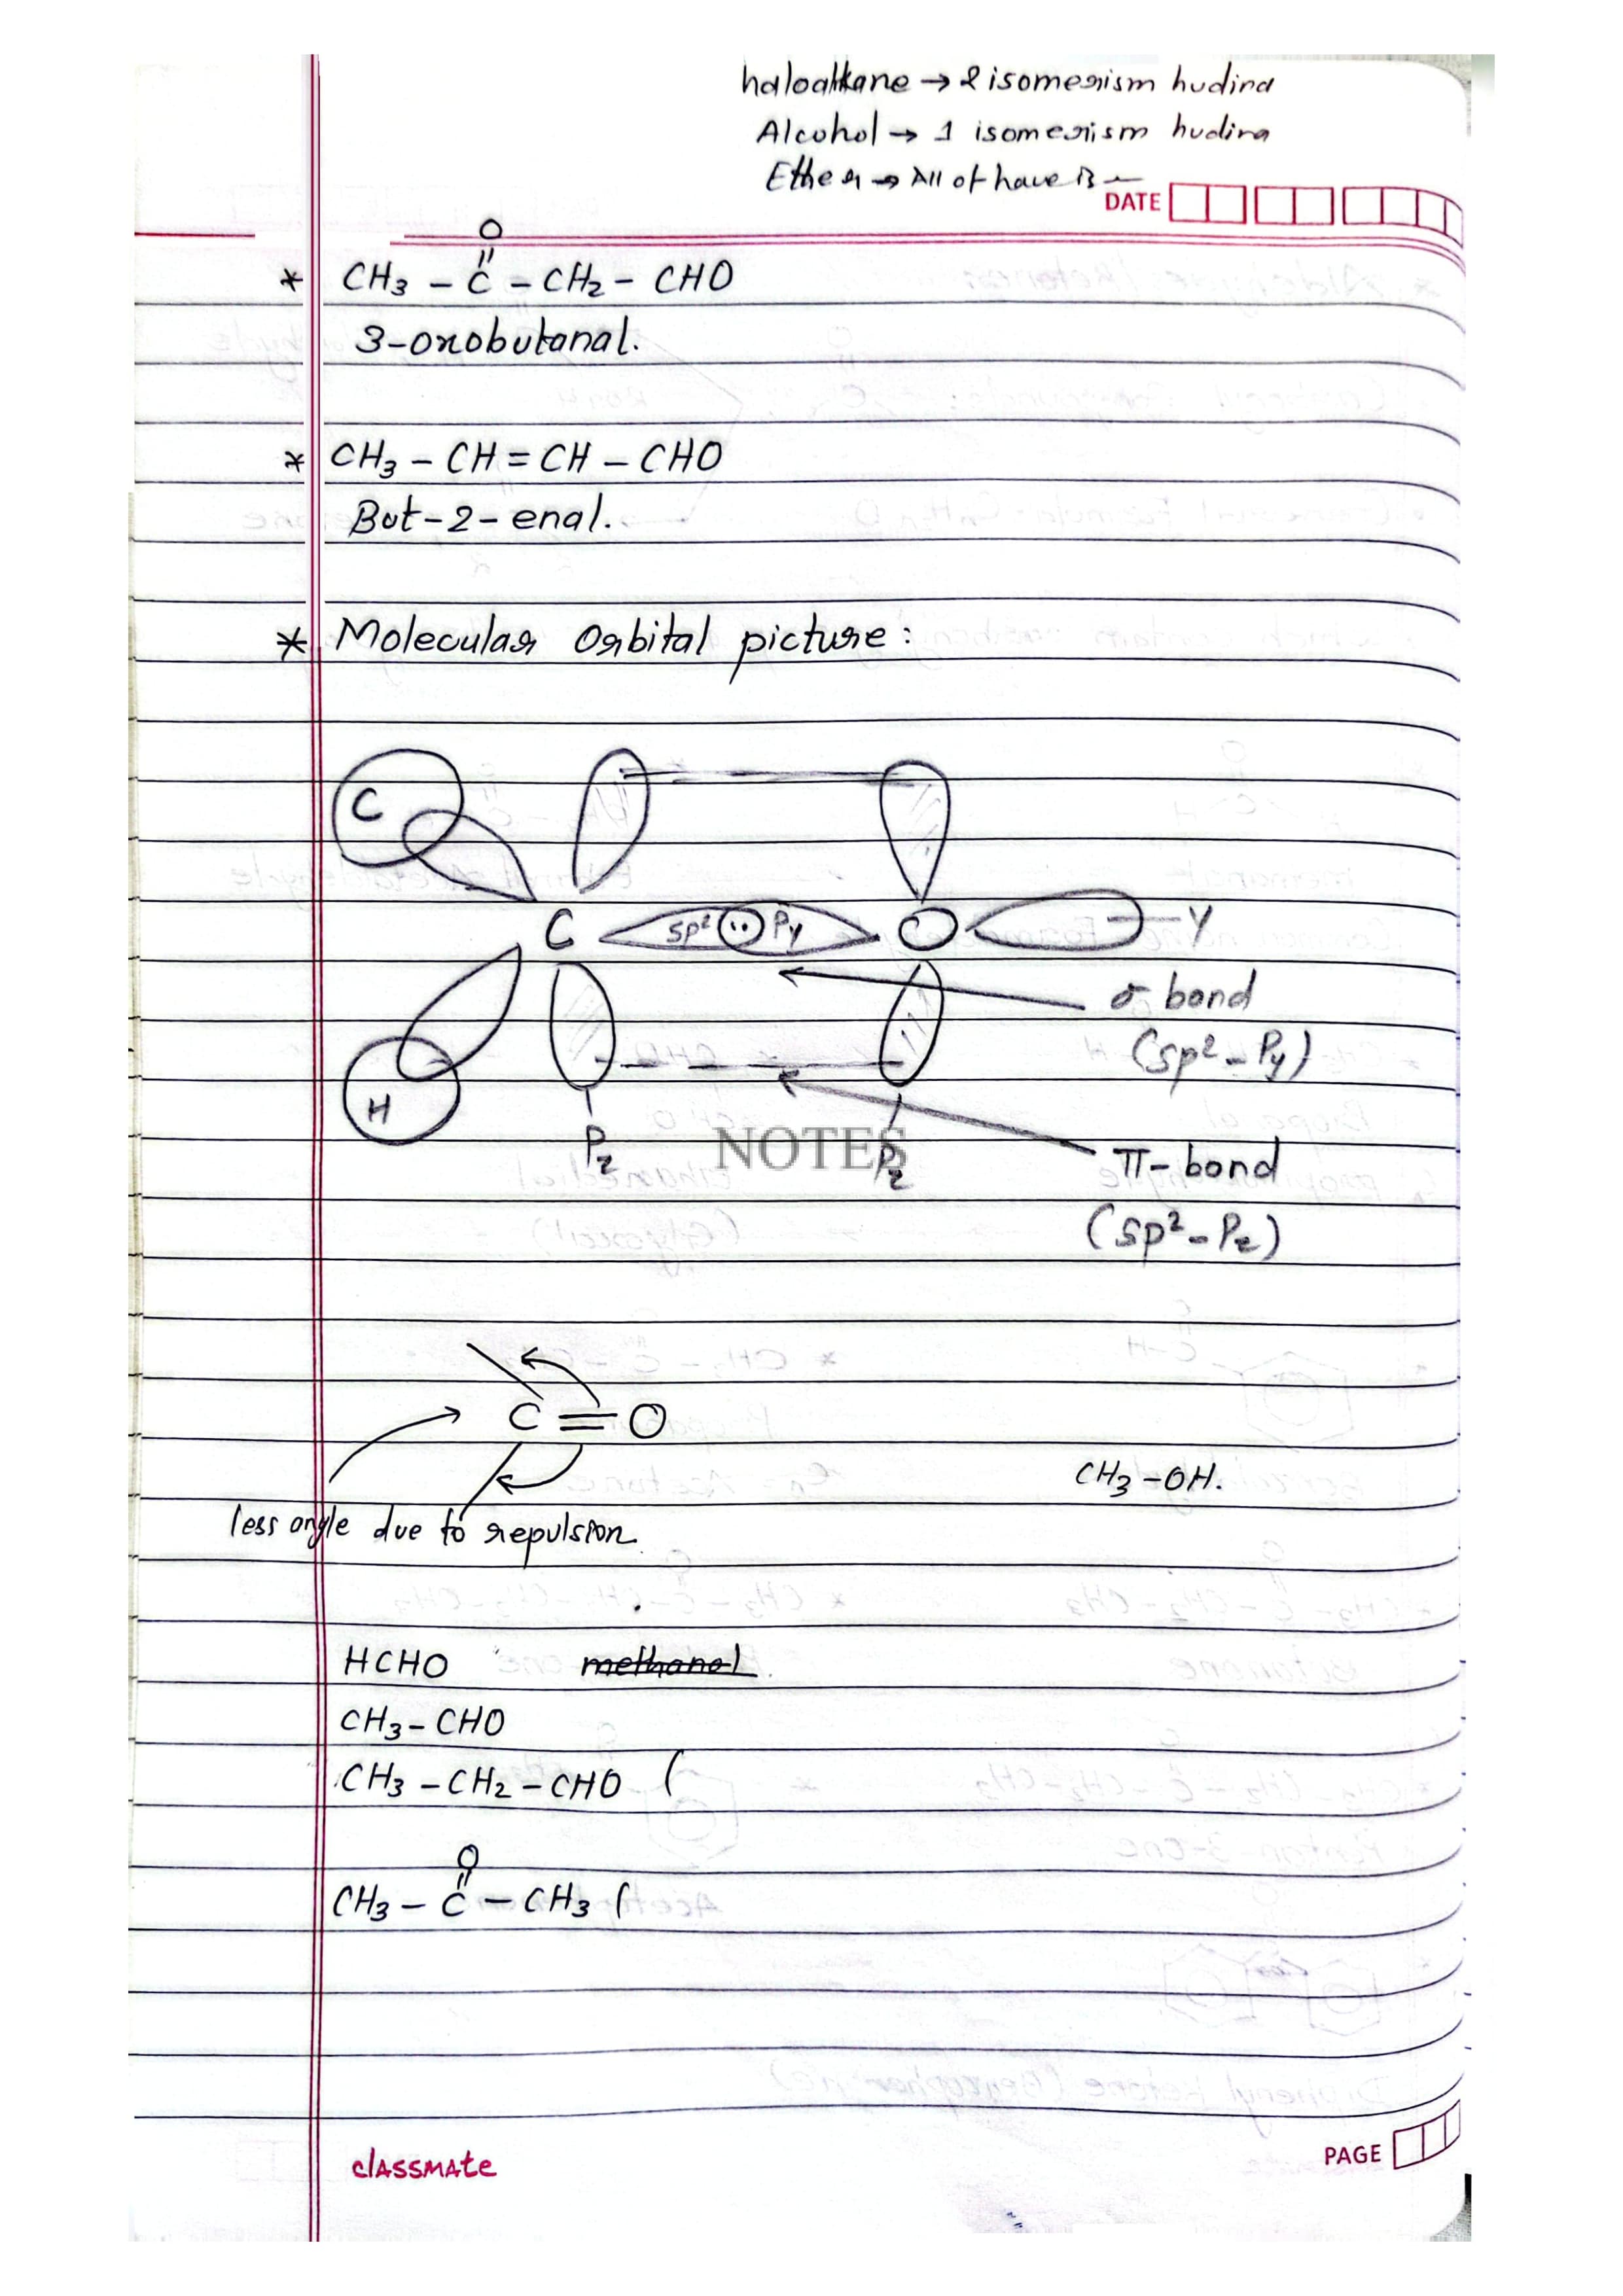 haloalkane → 2 isomerism hudina
Alcohol → 1 isomerism hudina
Ether → All of have
DATE
O
* CH₃ – C – CH₂ – CHO
3-oxobutanal.
* CH₃ – CH = CH – CHO
But-2-enal.
* Molecular Orbital picture:
C
C sp² Py O Y
σ bond
(sp² – Py)
H
Pz NOTES Pz
π-bond
(sp² – Pz)
C = O
CH₃ – OH.
less angle due to repulsion
HCHO methanol
CH₃ – CHO
CH₃ – CH₂ – CHO (
O
CH₃ – C – CH₃ (
classmate
PAGE